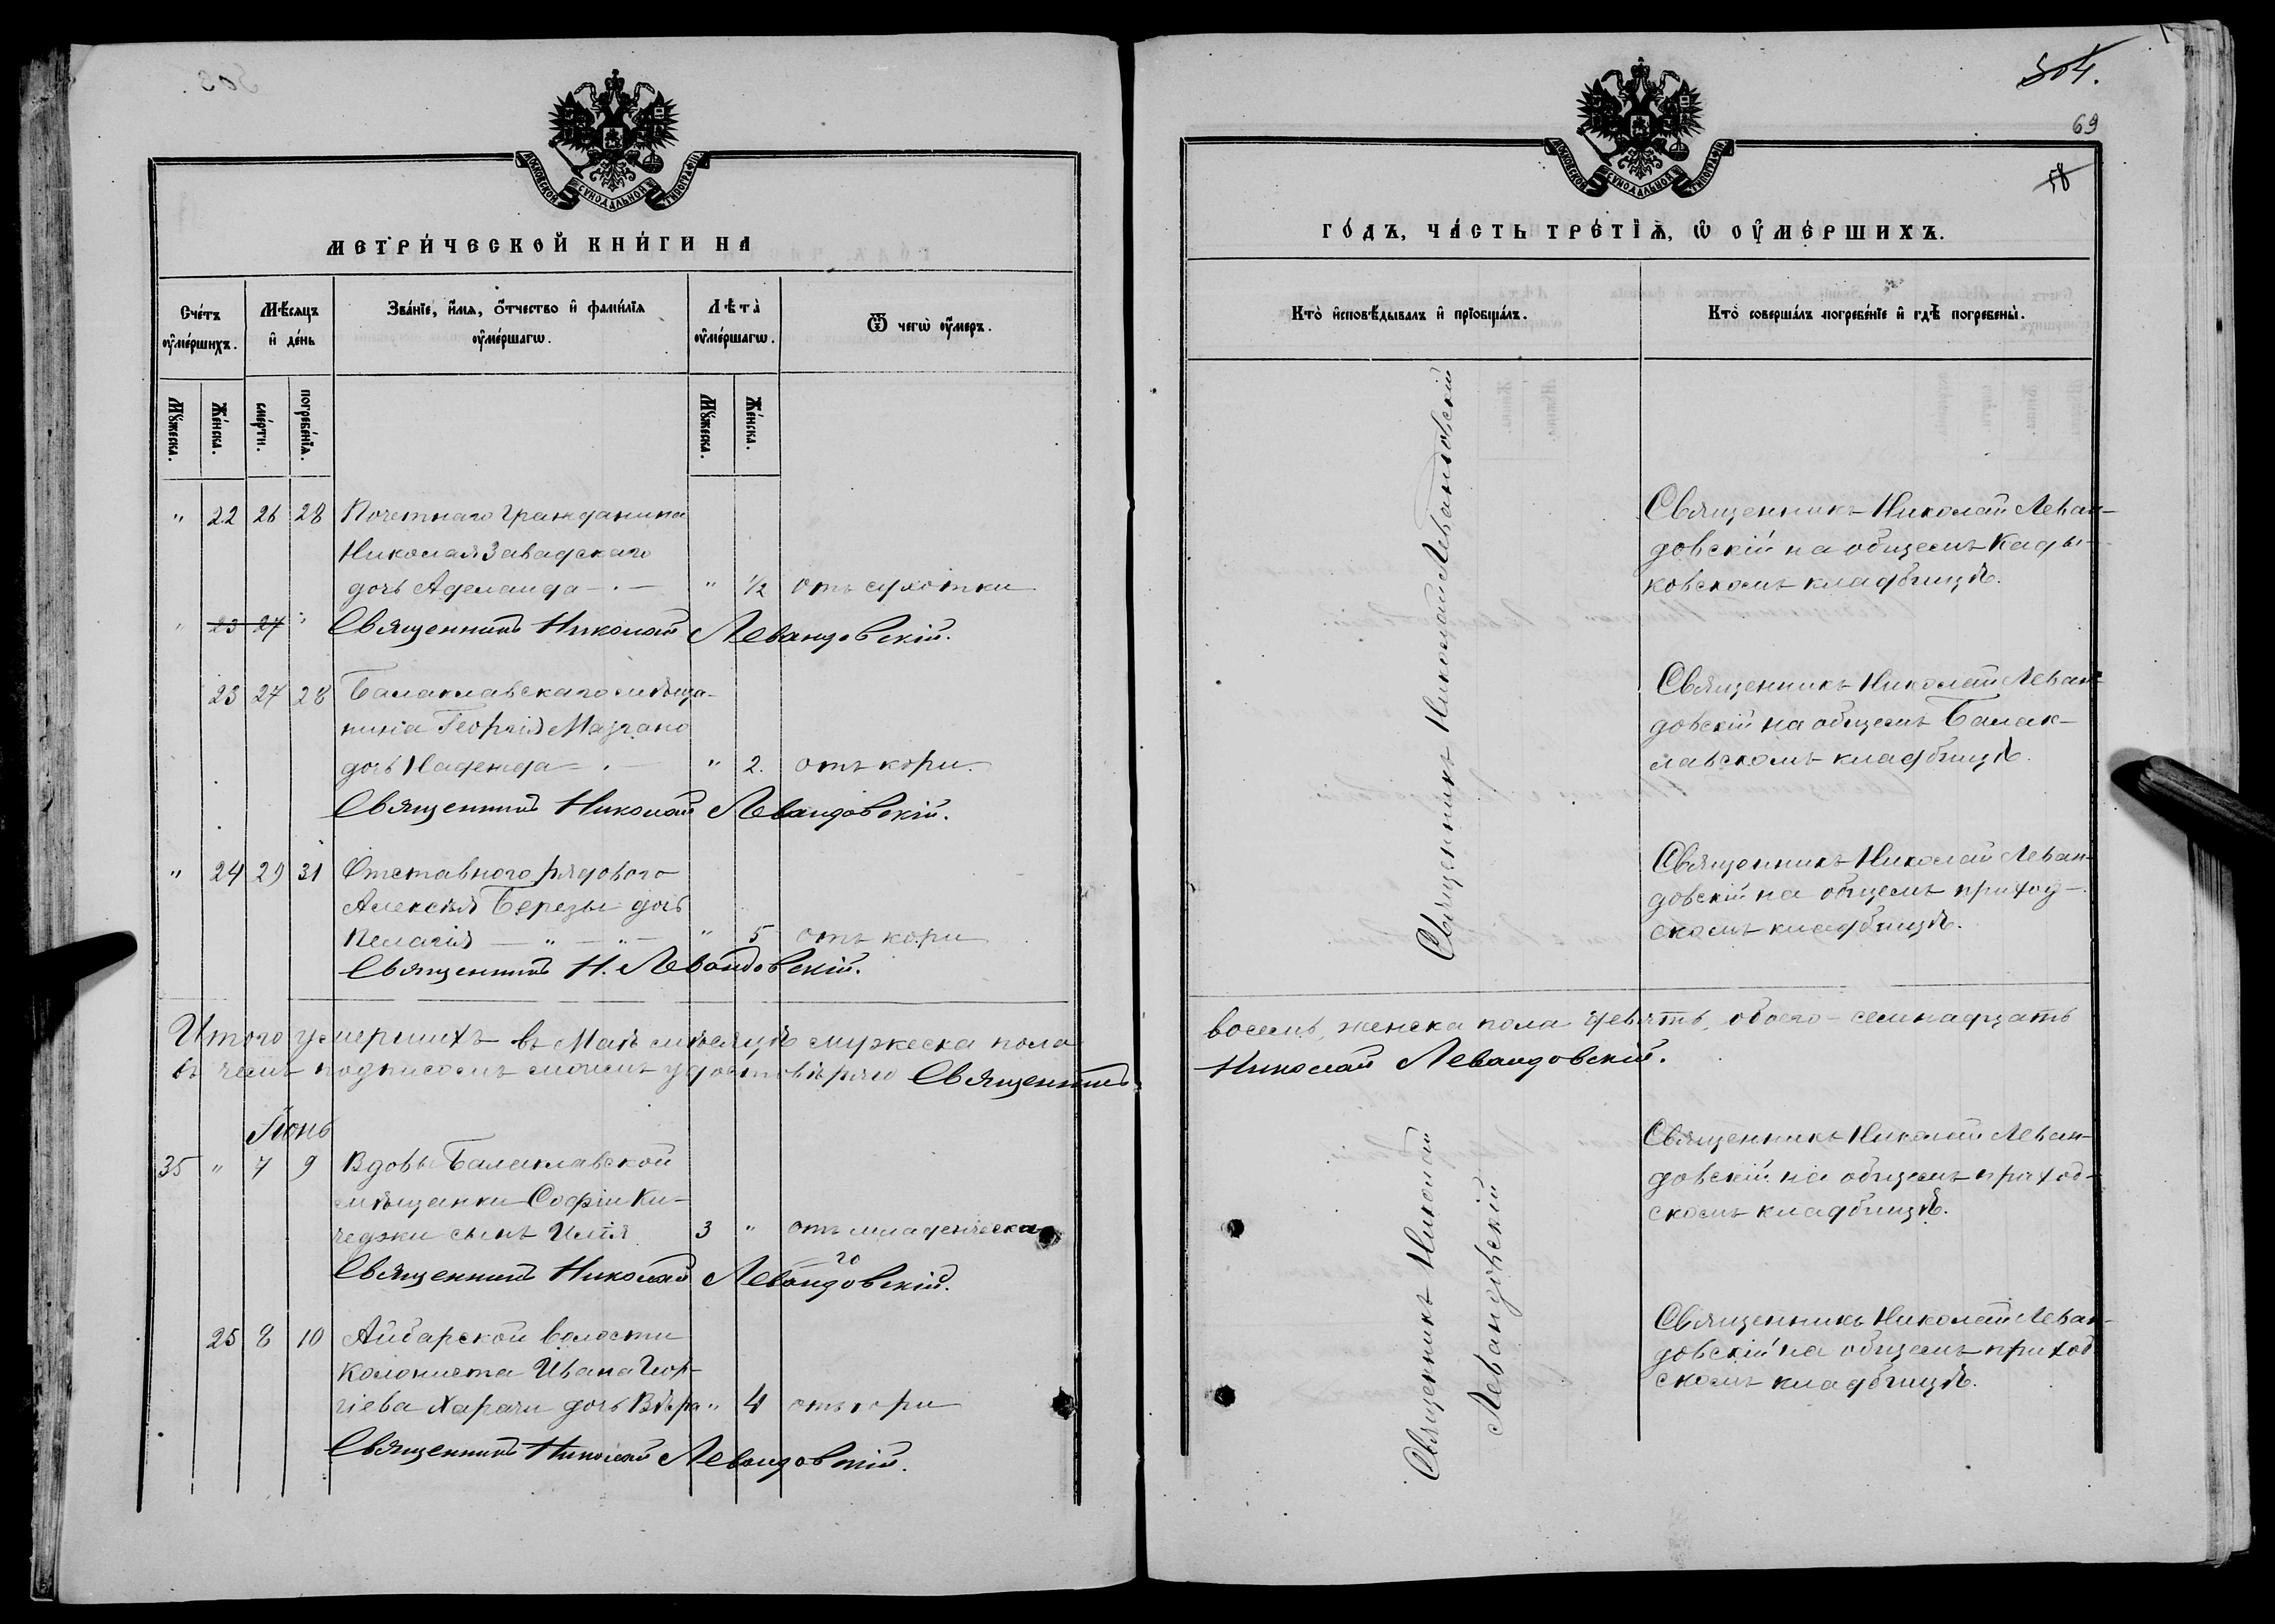 304.
69
58
МОСКОВСКОЙ СѴНОДАЛЬНОЙ ТИПОГРАФІИ
МЕТРИ́ЧЕСКОЙ КНИ́ГИ НА
Сче́тъ ᲂу҆ме́ршихъ.
Мѣ́сяцъ и҆ де́нь
Зва́нїе, и҆́мѧ, ѻ҆́тчество и҆ фами́лїѧ ᲂу҆ме́ршагѡ.
Лѣ́та ᲂу҆ме́ршагѡ.
Ѿ чегѡ̀ ᲂу҆́меръ.
Мꙋ́жеска.
Же́нска.
сме́рти.
погребе́нїѧ.
Мꙋ́жеска.
Же́нска.
" 22 26 28 Почетнаго Гражданина
Николая Завадскаго
дочь Аделаида " 1/2 отъ сухотки
" 23 27 " Священникъ Николай Левандовскій.
23 27 28 Балаклавскаго мѣща-
нина Георгія Мазгано
дочь Надежда " 2. отъ кори.
Священникъ Николай Левандовскій.
" 24 29 31 Отставного рядового
Алексѣя Березы дочь
Пелагія — " — " — " 5 отъ кори
Священникъ Н. Левандовскій.
Итого умершихъ въ Маѣ мѣсяцѣ мужеска пола
въ чемъ подписомъ моимъ удостовѣряю Священникъ
Іюнь
35 " 7 9 Вдовы Балаклавской
мѣщанки Софіи Ки-
чеджи сынъ Илія 3 " отъ младенческа-
го
Священникъ Николай Левандовскій.
25 8 10 Айбарской волости
колониста Ивана Геор-
гіева Харачи дочь Вѣра " 4 отъ кори
Священникъ Николай Левандовскій.
МОСКОВСКОЙ СѴНОДАЛЬНОЙ ТИПОГРАФІИ
ГО́ДЪ, ЧА́СТЬ ТРЕ́ТЇѦ, Ѡ ОУ҆МЕ́РШИХЪ.
Кто̀ и҆сповѣ́дывалъ и҆ прїобща́лъ.
Кто̀ соверша́лъ погребе́нїе и҆ гдѣ̀ погребены̀.
Священникъ Николай Левандовскій
Священникъ Николай Леван-
довскій на общемъ Кады-
ковскомъ кладбищѣ.
Священникъ Николай Леван-
довскій на общемъ Балак-
лавскомъ кладбищѣ.
Священникъ Николай Леван-
довскій на общемъ приход-
скомъ кладбищѣ.
восемь, женска пола девять, обоего – семнадцать
Николай Левандовскій.
Священникъ Николай
Левандовскій
Священникъ Николай Леван-
довскій на общемъ приход-
скомъ кладбищѣ.
Священникъ Николай Леван-
довскій на общемъ приход-
скомъ кладбищѣ.